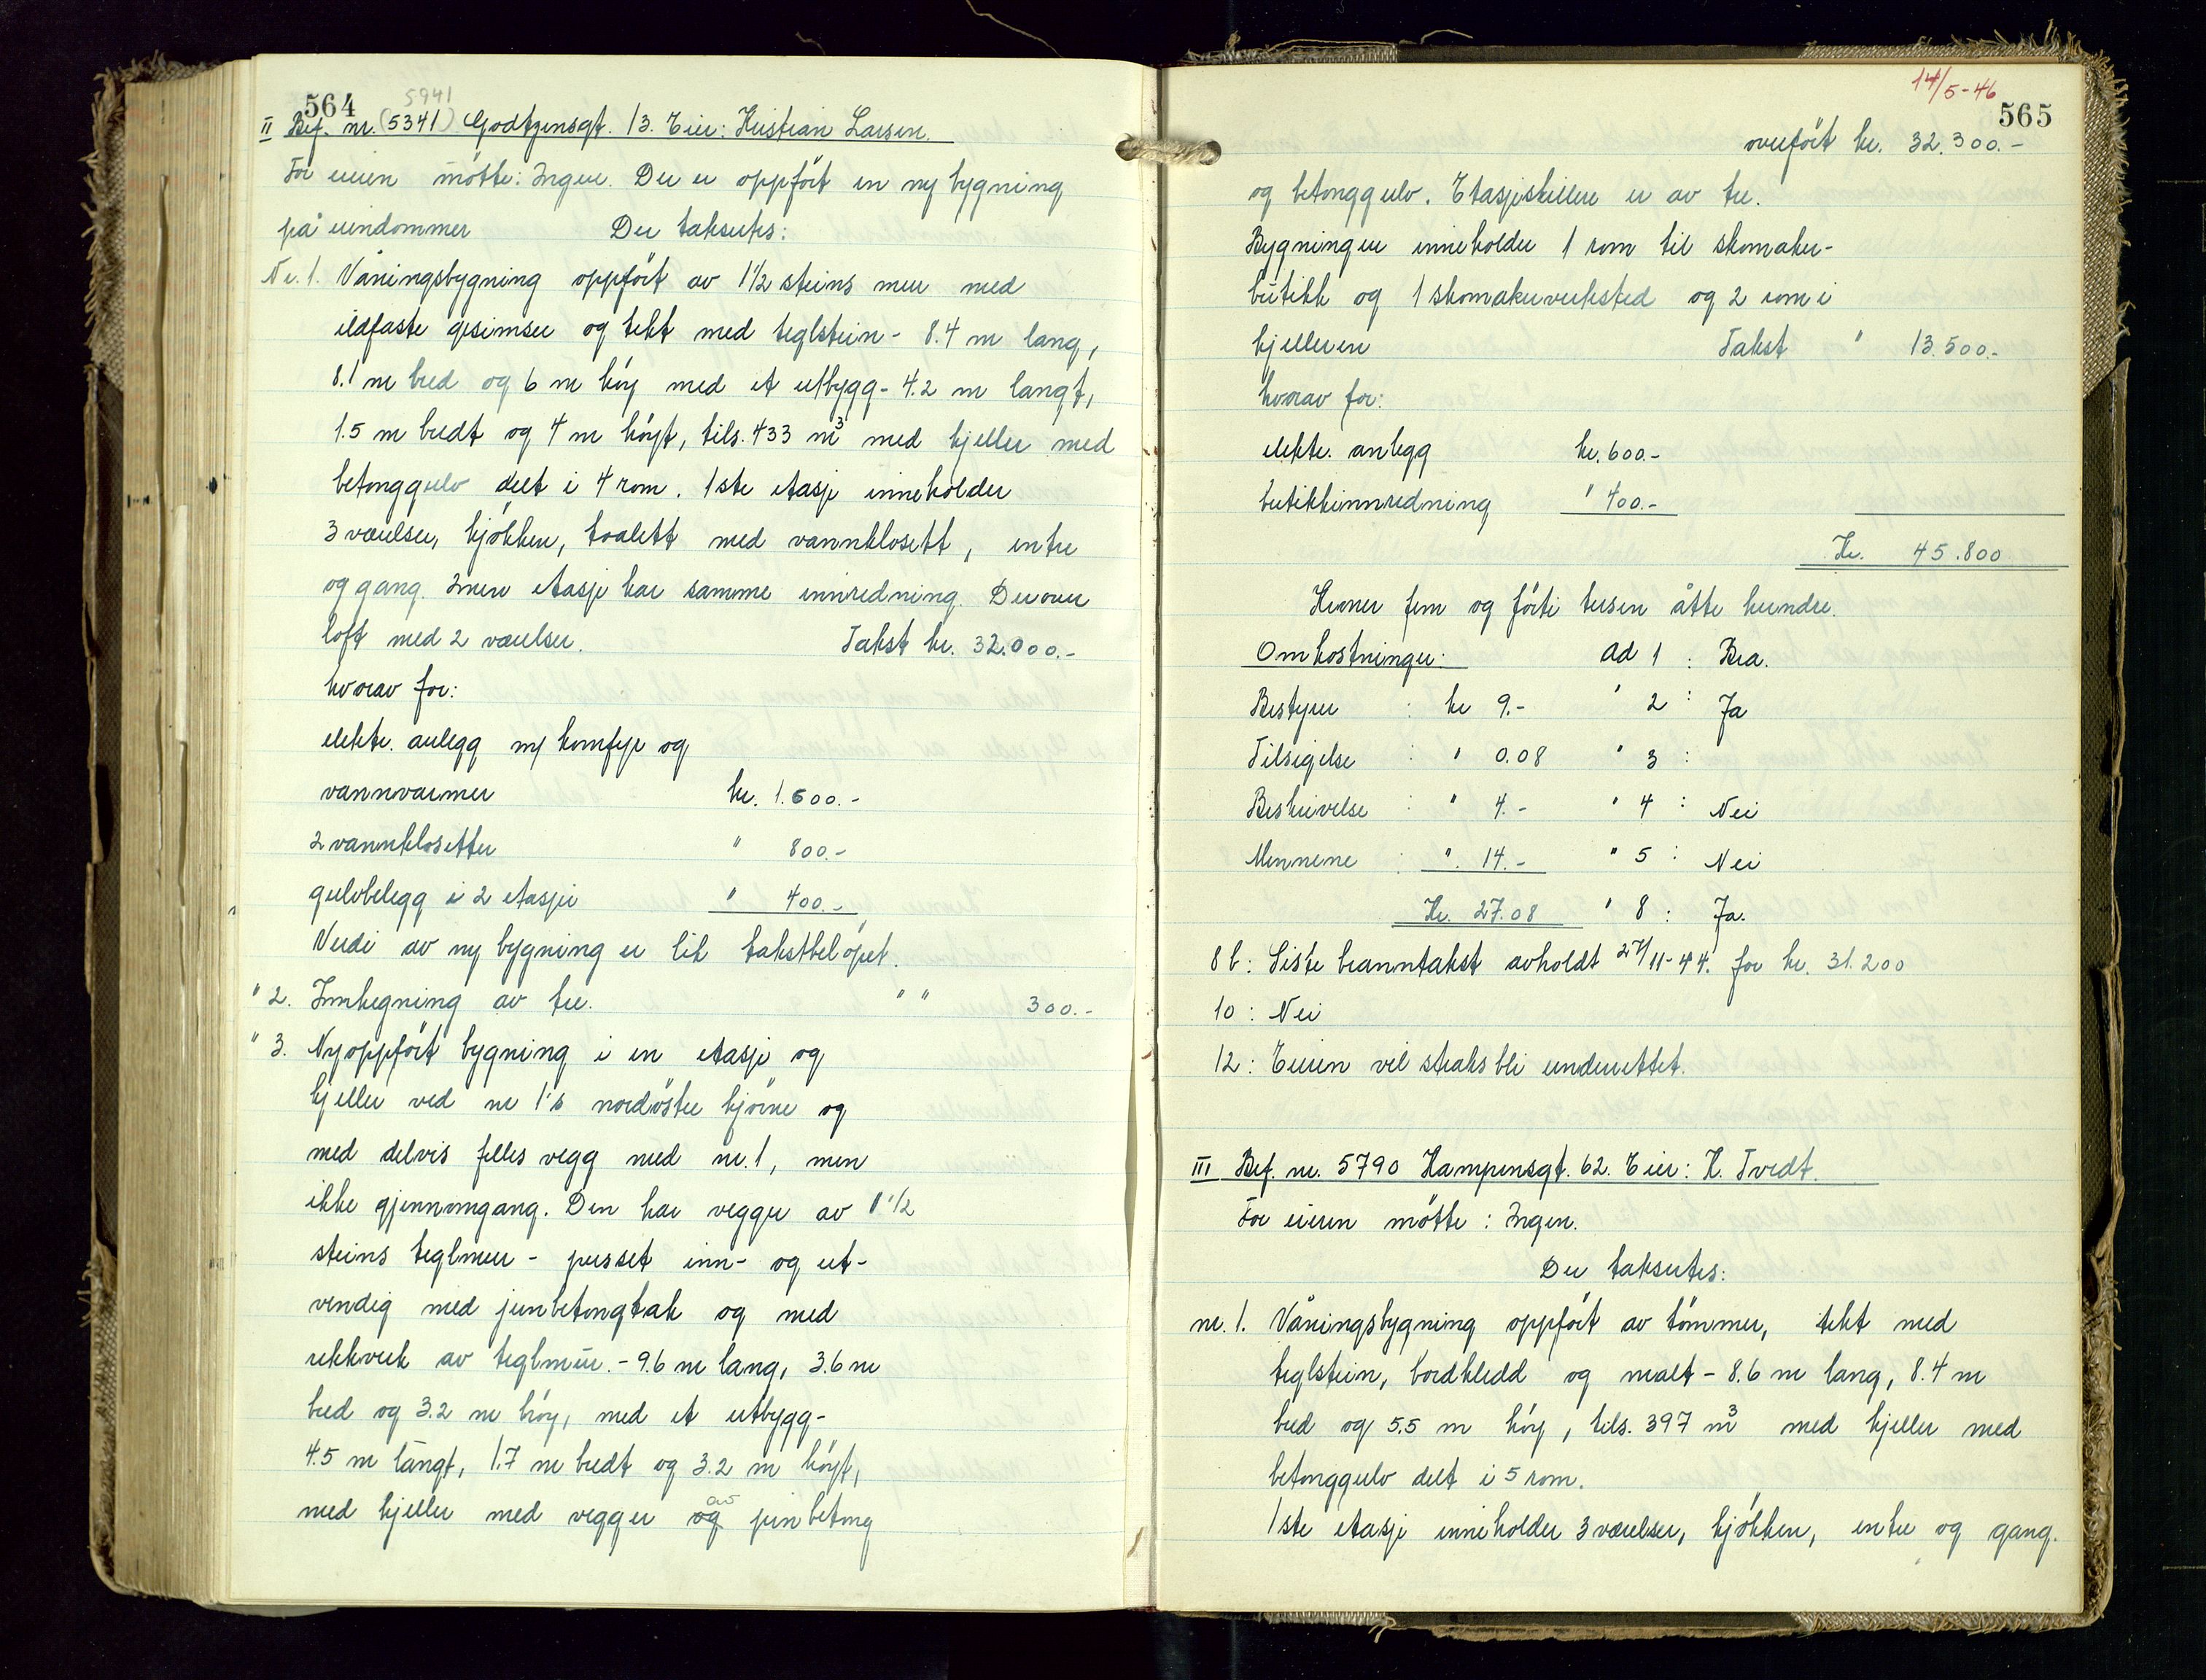 564
5941
II Bef. nr. (5341) Godtzensgt. 13. Eier: Kristian Larsen.
For eieren mötte: Ingen. Der er oppfört en ny bygning
på eiendommen Der taksertes:
Nr. 1. Våningsbygning oppfört av 1 1/2 steins mur med
ildfaste gesimser og tekt med teglstein - 8.4 m lang,
8.1 m bred og 6 m höy med et utbygg - 4.2 m langt,
1.5 m bredt og 4 m höyt, tils. 433 m³ med kjeller med
betonggulv delt i 4 rom. 1ste etasje inneholder
3 værelser, kjökken, toalett med vannklosett, entre
og gang. 2nen etasje har samme innredning. Derover
loft med 2 værelser. Takst kr. 32.000.-
hvorav for:
elektr. anlegg m/ komfyr og
vannvarmer kr. 1.600.-
2 vannklosetter " 800.-
gulvbelegg i 2 etasjer " 400.-
Verdi av ny bygning er lik takstbelöpet.
" 2. Innhegning av tre. " " 300.-
" 3. Nyoppfört bygning i en etasje og
kjeller ved nr 1's nordöstre hjörne og
med delvis felles vegg med nr. 1, men
ikke gjennomgang. Den har vegger av 1 1/2
steins teglmur - pusset inn- og ut-
vendig med jernbetongtak og med
rekkverk av teglmur. - 9.6 m lang, 3.6 m
bred og 3.2 m höy, med et utbygg -
4.5 m langt, 1.7 m bredt og 3.2 m höyt,
med kjeller med vegger og av jernbetong
14/5-46
565
overfört kr. 32.300.-
og betonggulv. Etasjeskillere er av tre.
Bygningen inneholder 1 rom til skomaker-
butikk og 1 skomakerverksted og 2 rom i
kjelleren Takst " 13.500.-
hvorav for:
elektr. anlegg kr. 600.-
butikkinnredning " 400.-
Kr. 45.800
Kroner fem og förti tusen åtte hundre.
Omkostninger: Ad 1 : Bra.
Bestyrer : kr 9.- " 2 : Ja
Tilsigelse : " 0.08 " 3 :
Beskrivelse : " 4.- " 4 : Nei
Mennene : " 14.- " 5 : Nei
Kr. 27.08 " 8 : Ja.
8 b : Siste branntakst avholdt 27/11-44. for kr. 31.200
10 : Nei
12 : Eieren vil straks bli underrettet.
III Bef. nr. 5790 Kampensgt. 62. Eier: K. Tvedt.
For eieren mötte : Ingen.
Der taksertes:
nr. 1. Våningsbygning oppfört av tömmer, tekt med
teglstein, bordkledd og malt - 8.6 m lang, 8.4 m
bred og 5.5 m höy, tils. 397 m³ med kjeller med
betonggulv delt i 5 rom.
1ste etasje inneholder 3 værelser, kjökken, entre og gang.